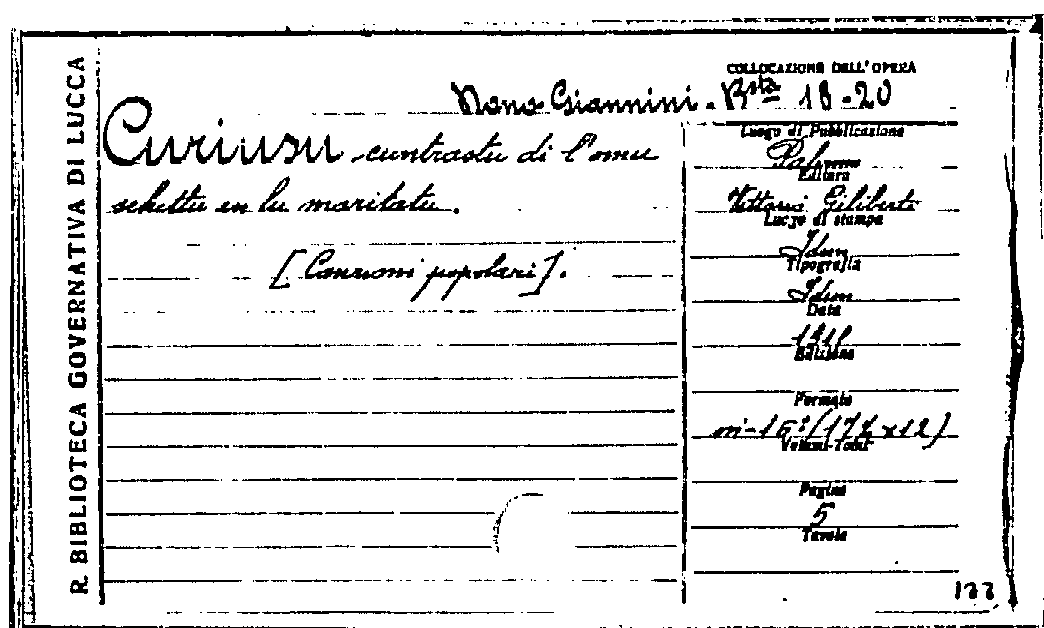 R. BIBLIOTECA GOVERNATIVA DI LUCCA
COLLOCAZIONE DELL'OPERA
Giannini. Bsta 18-20
Curiusu cuntrastu di l'omu
schettu cu lu maritatu.
[Canzoni popolari].
Luogo di Pubblicazione
Palermo
Editore
Vittorio Giliberti
Luogo di stampa
Idem
Tipografia
Idem
Data
Edizione
Formato
in-16º (17½ x12)
Volumi-Tomi
Pagine
5
Tavole
122